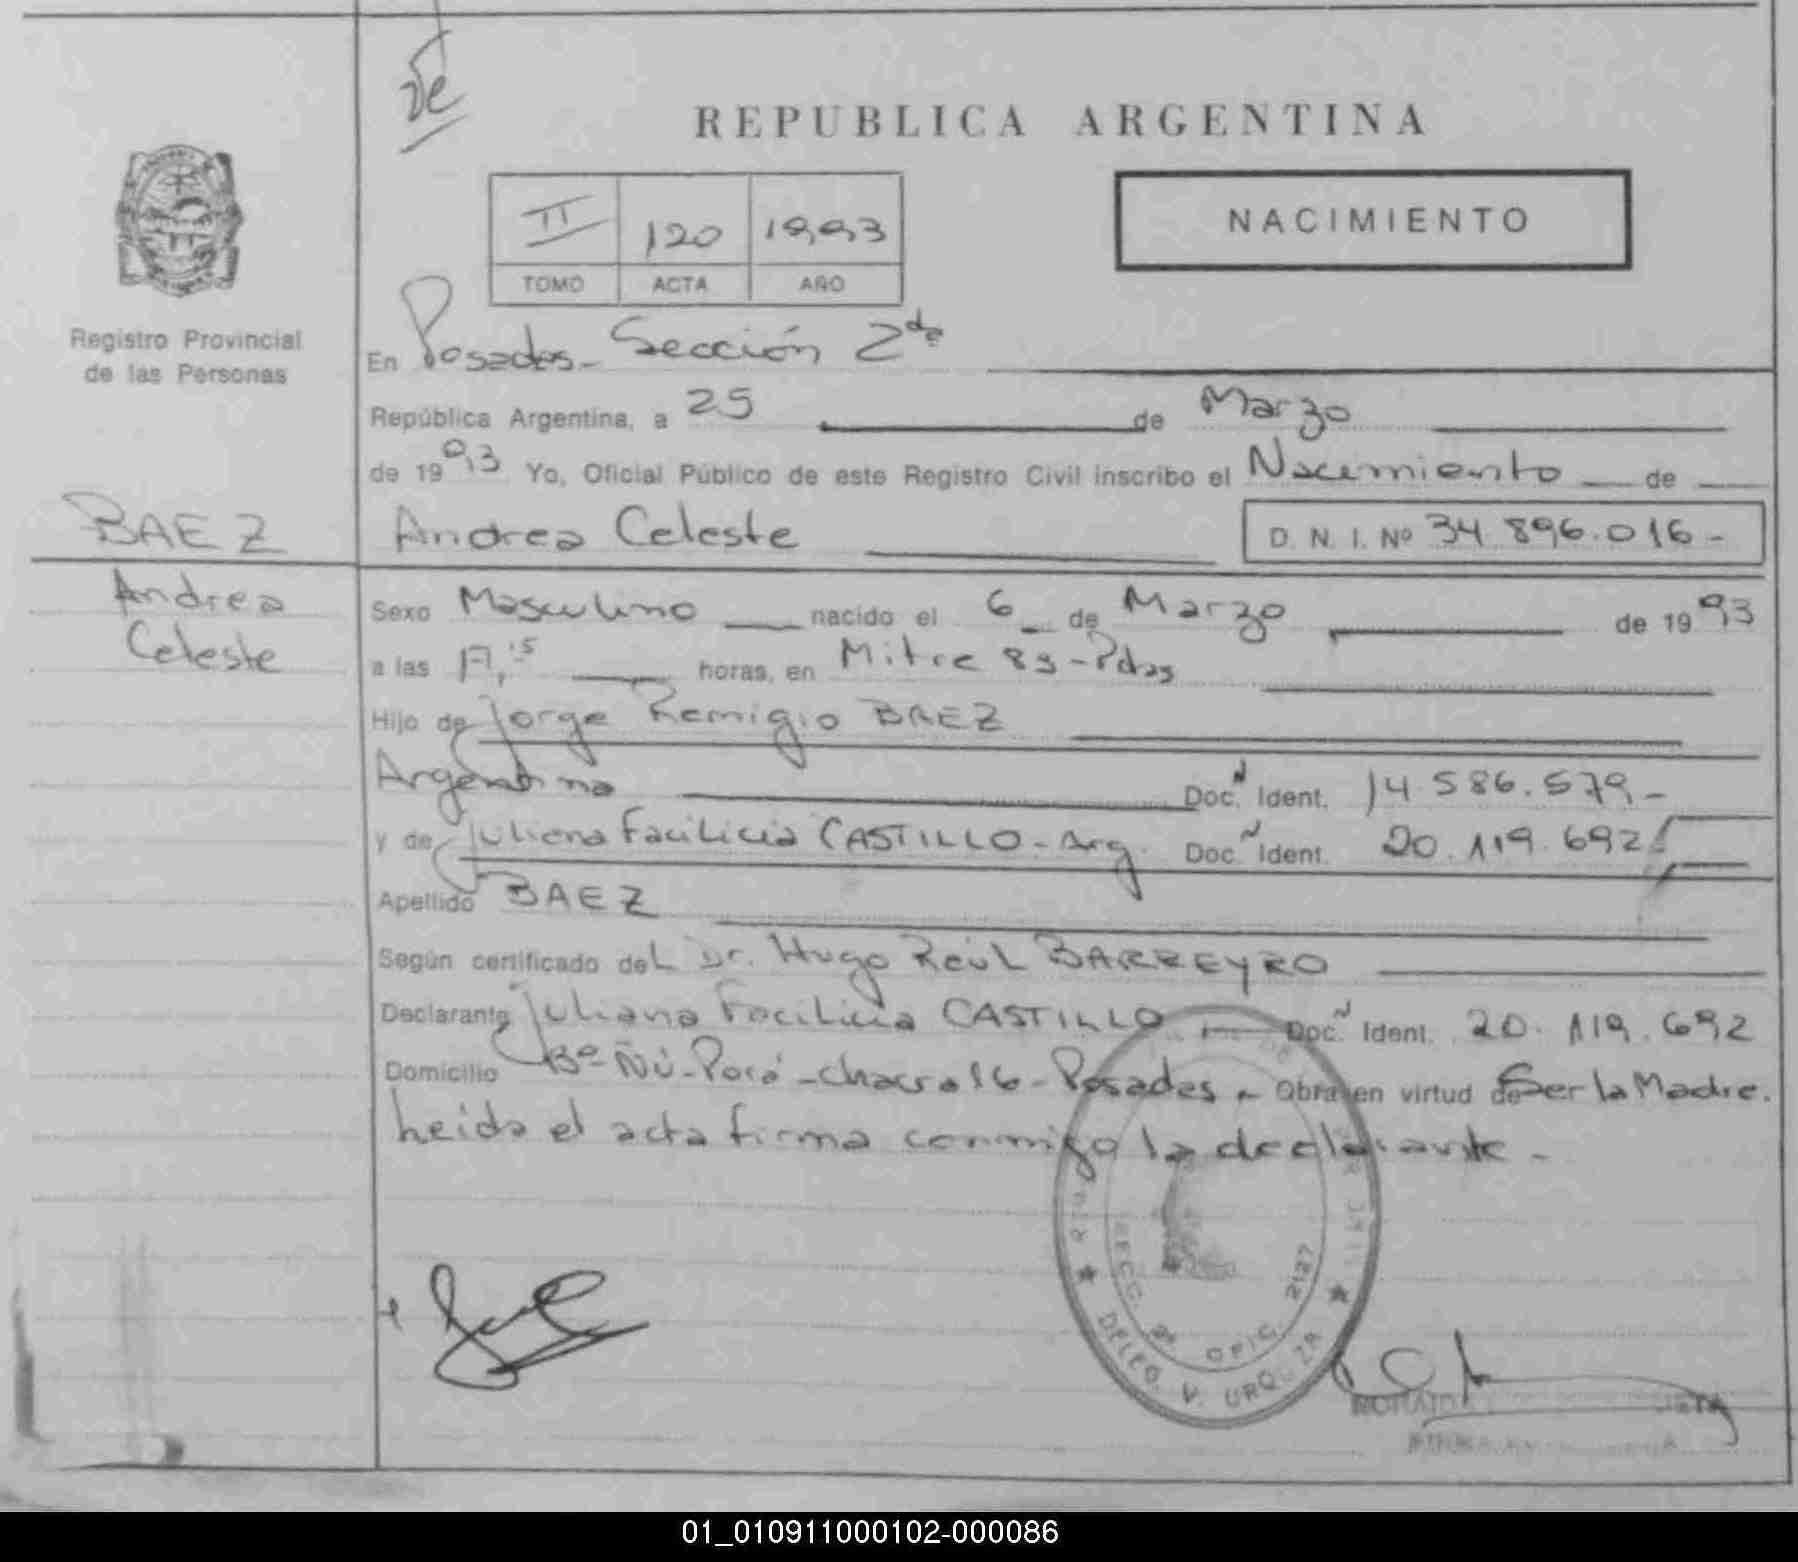 REPUBLICA ARGENTINA
NACIMIENTO
II 120 1993
TOMO ACTA AÑO
Registro Provincial
de las Personas
En Posadas - Sección 2da
República Argentina, a 25 de Marzo
de 1993 Yo, Oficial Público de este Registro Civil inscribo el Nacemiento de
BAEZ
Andrea Celeste D. N. I. Nº 34 896.016 -
Andrea
Celeste
Sexo Masculino nacido el 6 de Marzo de 1993
a las 17,15 horas, en Mitre 89 - Pdas
Hijo de Jorge Remigio BAEZ
Argentino Doc. Ident. 14.586.579 -
y de Juliana Facilicia CASTILLO - Arg. Doc. Ident. 20.119.692
Apellido BAEZ
Según certificado del Dr. Hugo Reúl BARREYRO
Declarante Juliana Facilicia CASTILLO Doc. Ident. 20.119.692
Domicilio Bº Ñú - Porá - chacra 16 - Posadas - Obra en virtud de Ser la Madre.
Leida el acta firma conmigo la declarante -
SECC. 2ª OFIC. 2127
DELEG. V. URQUIZA
01_010911000102-000086